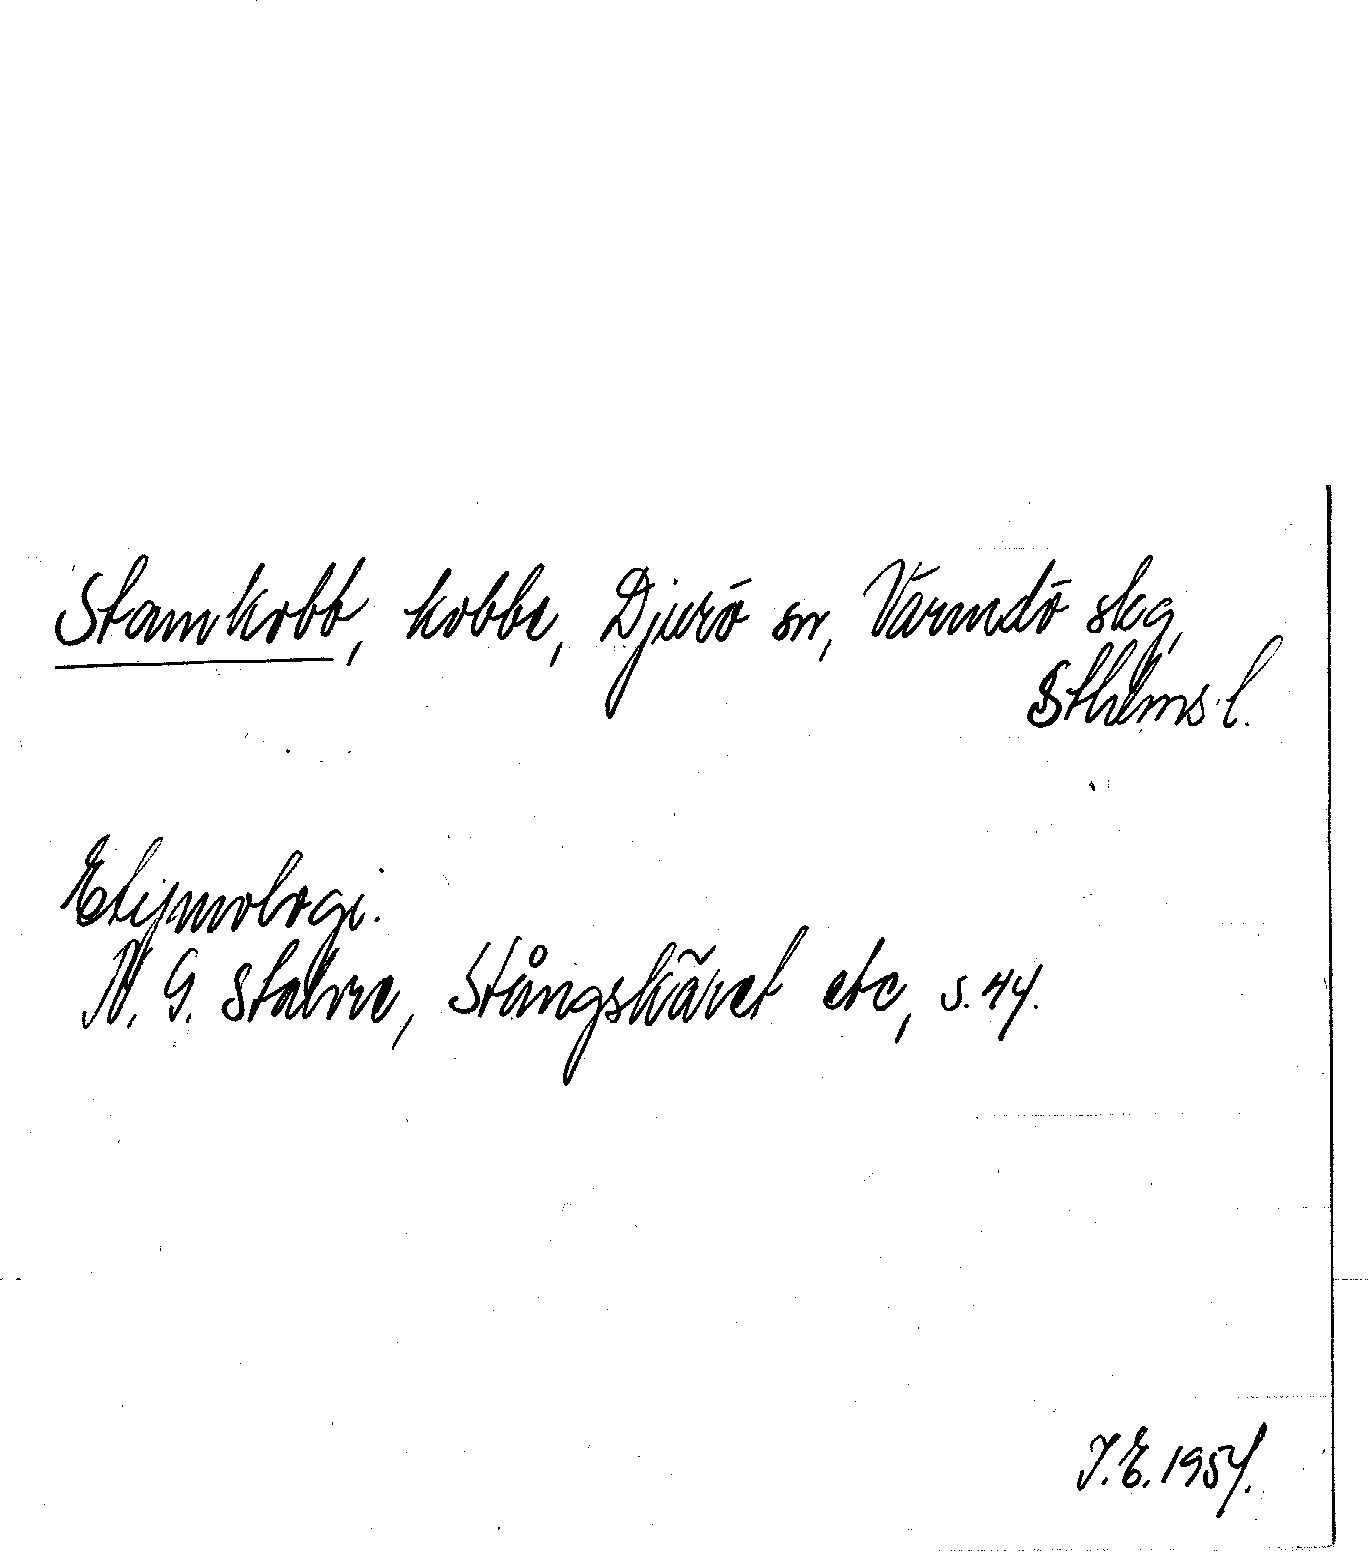 Stamkobb, kobbe, Djurö sn, Värmdö skg,
Sthlms l.
Etymologi:
N. G. Stahre, Stångskäret etc, s. 44.
I. E. 1954.